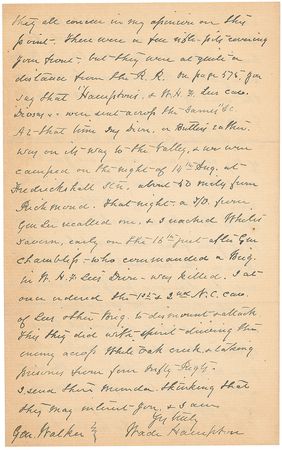 They all concur in my opinion on this
point. There were a few rifle-pits covering
your front, but they were at quite a
distance from the R.R. On page 575, you
say that "Hampton's, & W. H. F. Lee's cav.
Divns. were sent across the James" &c
At that time my Divn. or Butler's rather
was on its way to the Valley, & we were
camped on the night of 14th Aug. at
Frederickshall Stn. about 50 miles from
Richmond. That night a from
Gen Lee recalled me, & I reached White's
tavern, early on the 16th just after Gen
Chambliss who commanded a Brig.
in W. H. F. Lee's Divn. was killed. I at
once ordered the & 2nd N.C. cav.
of Lee's other Brig. to dismount & attack
this they did with spirit driving the
enemy across White Oak creek, & taking
prisoners from four Regts.
I send these thinking that
they may interest you, & I am
Yrs truly
Gen. Walker Wade Hampton